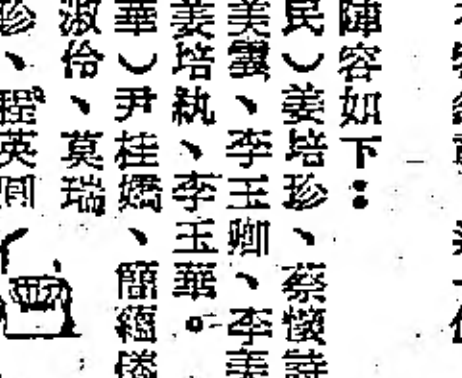 陣容如下：
民）姜培珍、蔡懷詩
美雲、李玉卿、李美
姜培執、李玉華。
華）尹桂嬌、簡蘊
淑伶、莫瑞
珍、程英圓